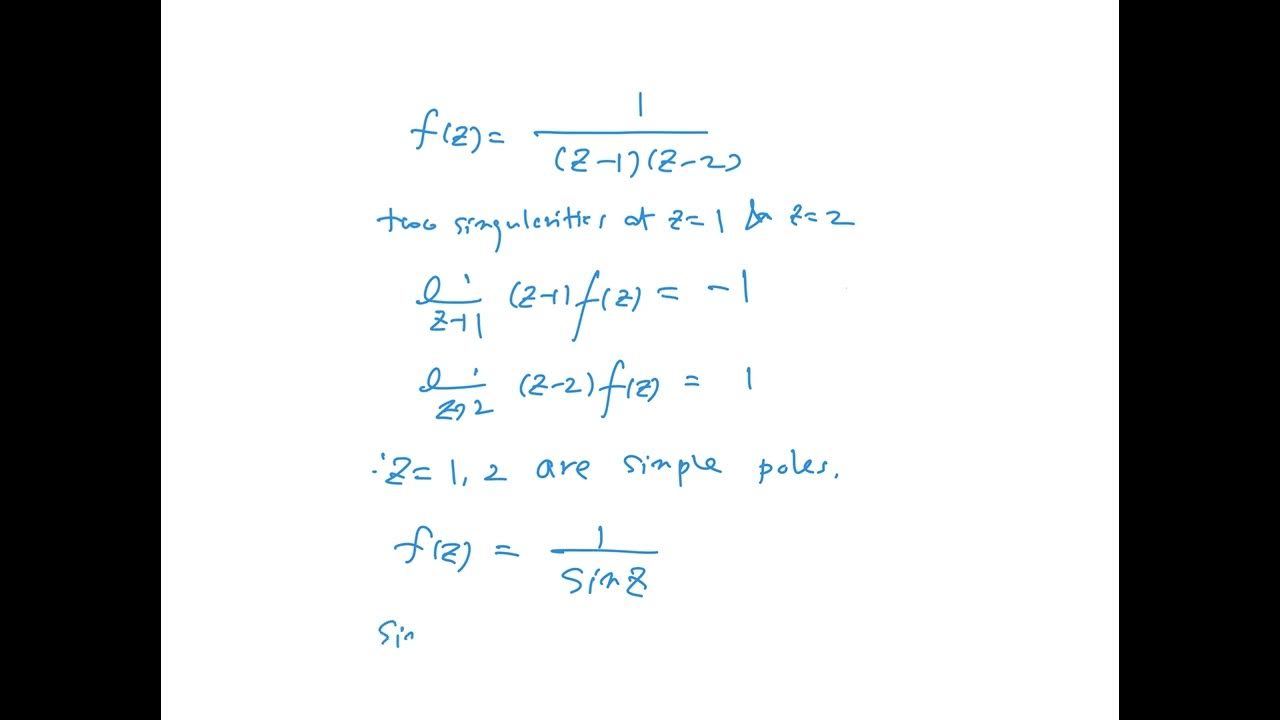 f(z) = 1 / (z-1)(z-2)
two singularities at z=1 & z=2
lim z→1 (z-1)f(z) = -1
lim z→2 (z-2)f(z) = 1
∴ z=1, 2 are simple poles.
f(z) = 1 / sinz
Sin